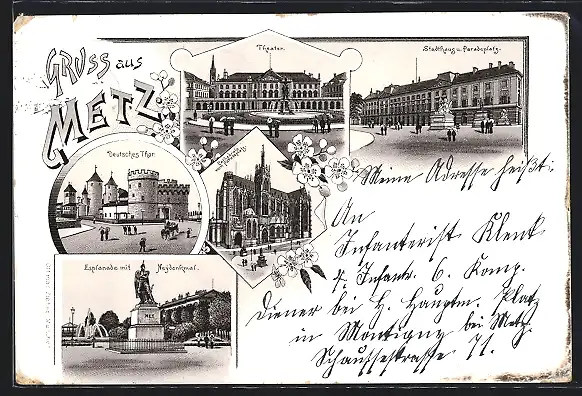 GRUSS aus
METZ
Theater.
Stadthaus u. Paradeplatz.
Deutsches Thor.
Esplanade mit Neydenkmal.
NEY
Meine Adresse heißt:
An
Infanterist Klenk
4. Infantr. 6. Komp.
Diener bei H. Hauptm. Platz
in Montigny bei Metz.
Schausseestrasse 71.